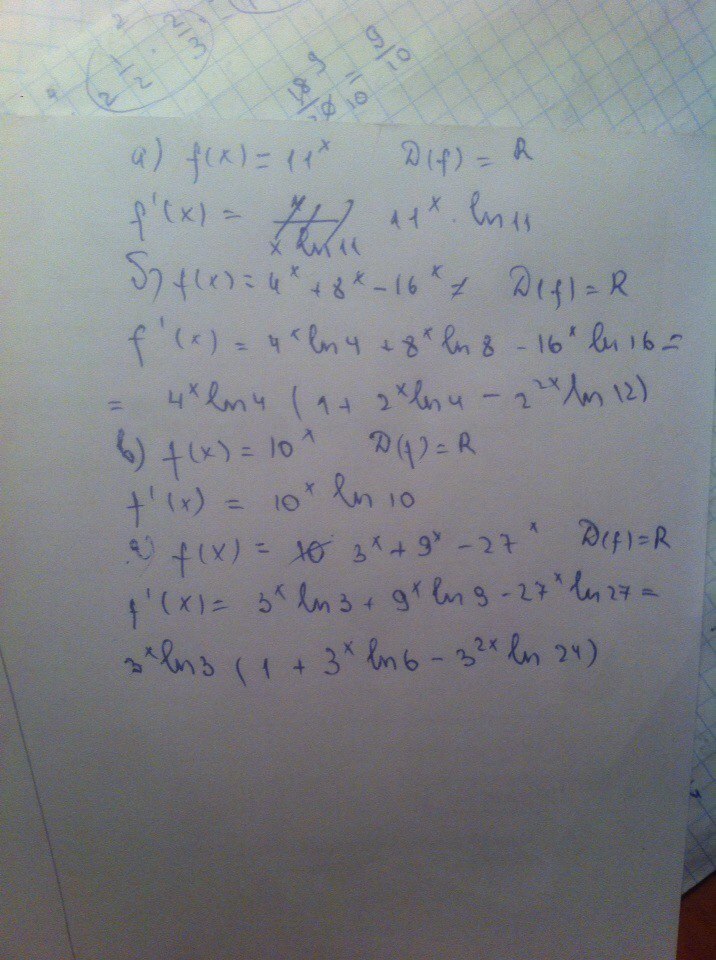 2 1/2 · 2/3
18 9
/20 10 = 9/10
а) f(x) = 11ˣ D(f) = R
f'(x) = 11ˣ · ln 11
x ln 11
б) f(x) = 4ˣ + 8ˣ - 16ˣ D(f) = R
f'(x) = 4ˣ ln 4 + 8ˣ ln 8 - 16ˣ ln 16 =
= 4ˣ ln 4 (1 + 2ˣ ln 4 - 2²ˣ ln 12)
в) f(x) = 10ˣ D(f) = R
f'(x) = 10ˣ ln 10
г) f(x) = 10 3ˣ + 9ˣ - 27ˣ D(f) = R
f'(x) = 3ˣ ln 3 + 9ˣ ln 9 - 27ˣ ln 27 =
3ˣ ln 3 (1 + 3ˣ ln 6 - 3²ˣ ln 24)